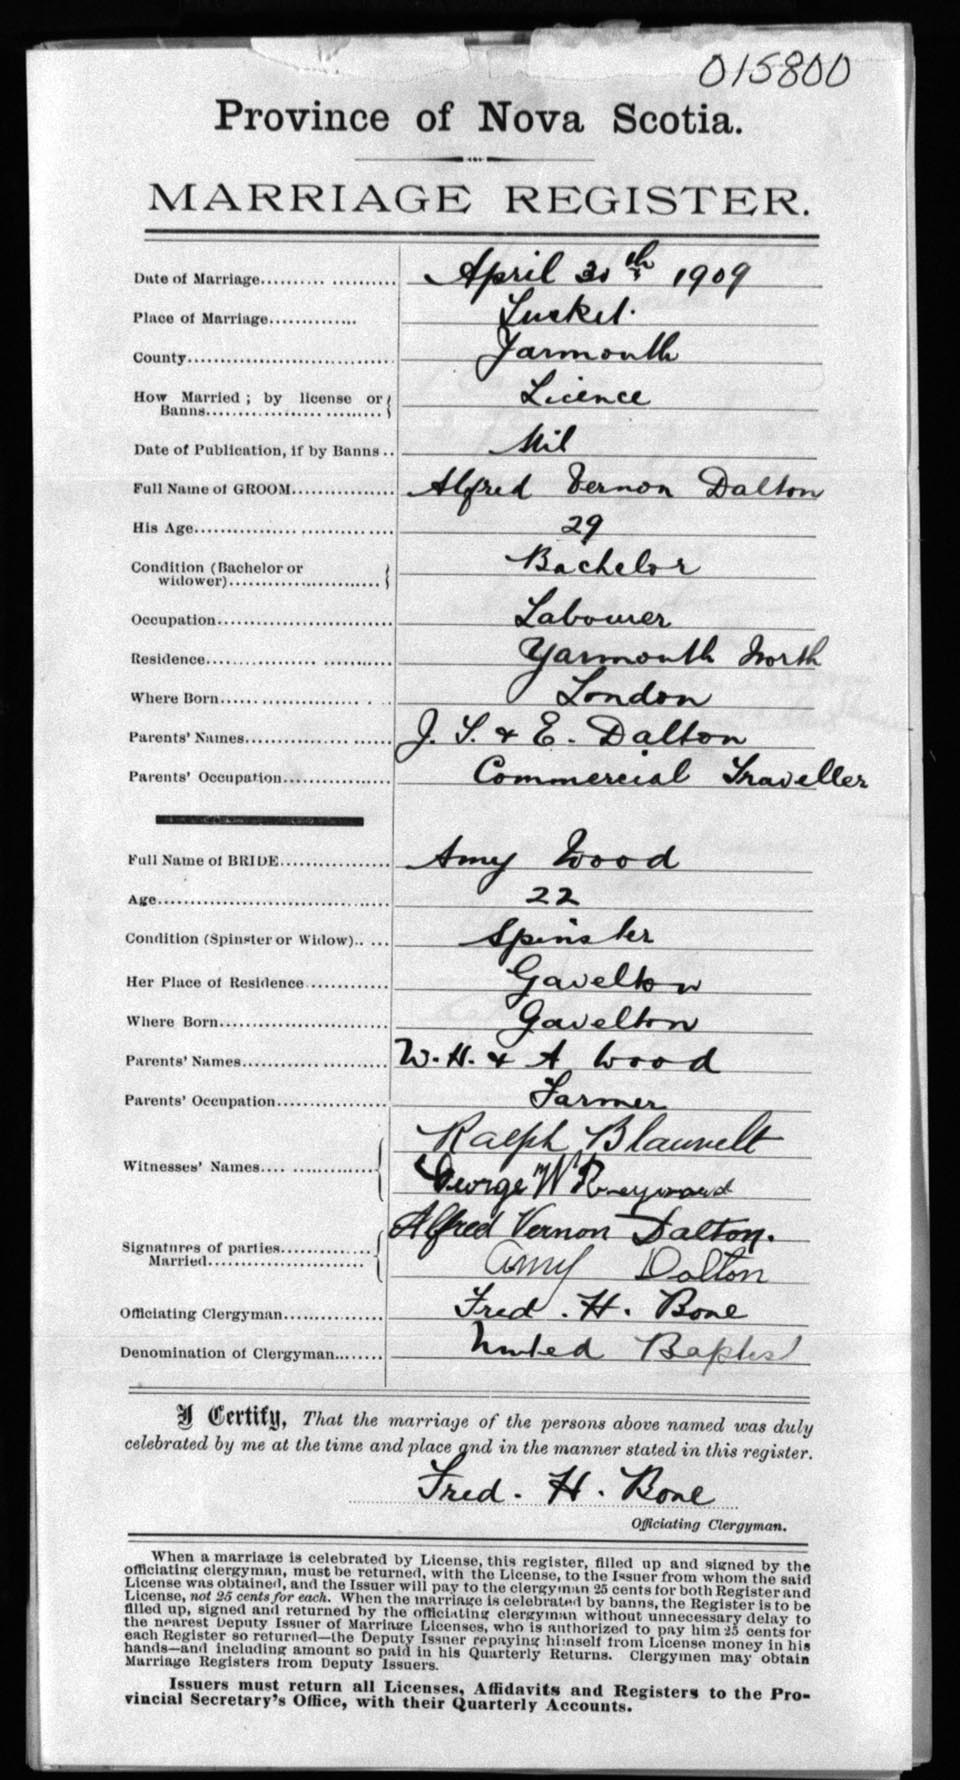 015800
Province of Nova Scotia.
MARRIAGE REGISTER.
Date of Marriage.................... April 30th 1909
Place of Marriage.............. Tusket.
County............................. Yarmouth
How Married; by license or Licence
Banns.........................
Date of Publication, if by Banns.. Nil
Full Name of GROOM.............. Alfred Vernon Dalton
His Age........................... 29
Condition (Bachelor or Bachelor
widower)........................
Occupation......................... Labourer
Residence.......................... Yarmouth North
Where Born........................ London
Parents' Names.................... J. S. & E. Dalton
Parents' Occupation.............. Commercial Traveller
Full Name of BRIDE.............. Amy Wood
Age................................ 22
Condition (Spinster or Widow)..... Spinster
Her Place of Residence........... Gavelton
Where Born........................ Gavelton
Parents' Names.................... W. H. & A Wood
Parents' Occupation.............. Farmer
Ralph Blauvelt
Witnesses' Names.................
George W
Alfred Vernon Dalton.
Signatures of parties.............
Married....................... Amy Dalton
Officiating Clergyman............. Fred. H. Bone
Denomination of Clergyman........ United Baptist
I Certify, That the marriage of the persons above named was duly
celebrated by me at the time and place and in the manner stated in this register.
Fred. H. Bone
Officiating Clergyman.
When a marriage is celebrated by License, this register, filled up and signed by the
officiating clergyman, must be returned, with the License, to the Issuer from whom the said
License was obtained, and the Issuer will pay to the clergyman 25 cents for both Register and
License, not 25 cents for each. When the marriage is celebrated by banns, the Register is to be
filled up, signed and returned by the officiating clergyman without unnecessary delay to
the nearest Deputy Issuer of Marriage Licenses, who is authorized to pay him 25 cents for
each Register so returned—the Deputy Issuer repaying himself from License money in his
hands—and including amount so paid in his Quarterly Returns. Clergymen may obtain
Marriage Registers from Deputy Issuers.
Issuers must return all Licenses, Affidavits and Registers to the Pro-
vincial Secretary's Office, with their Quarterly Accounts.